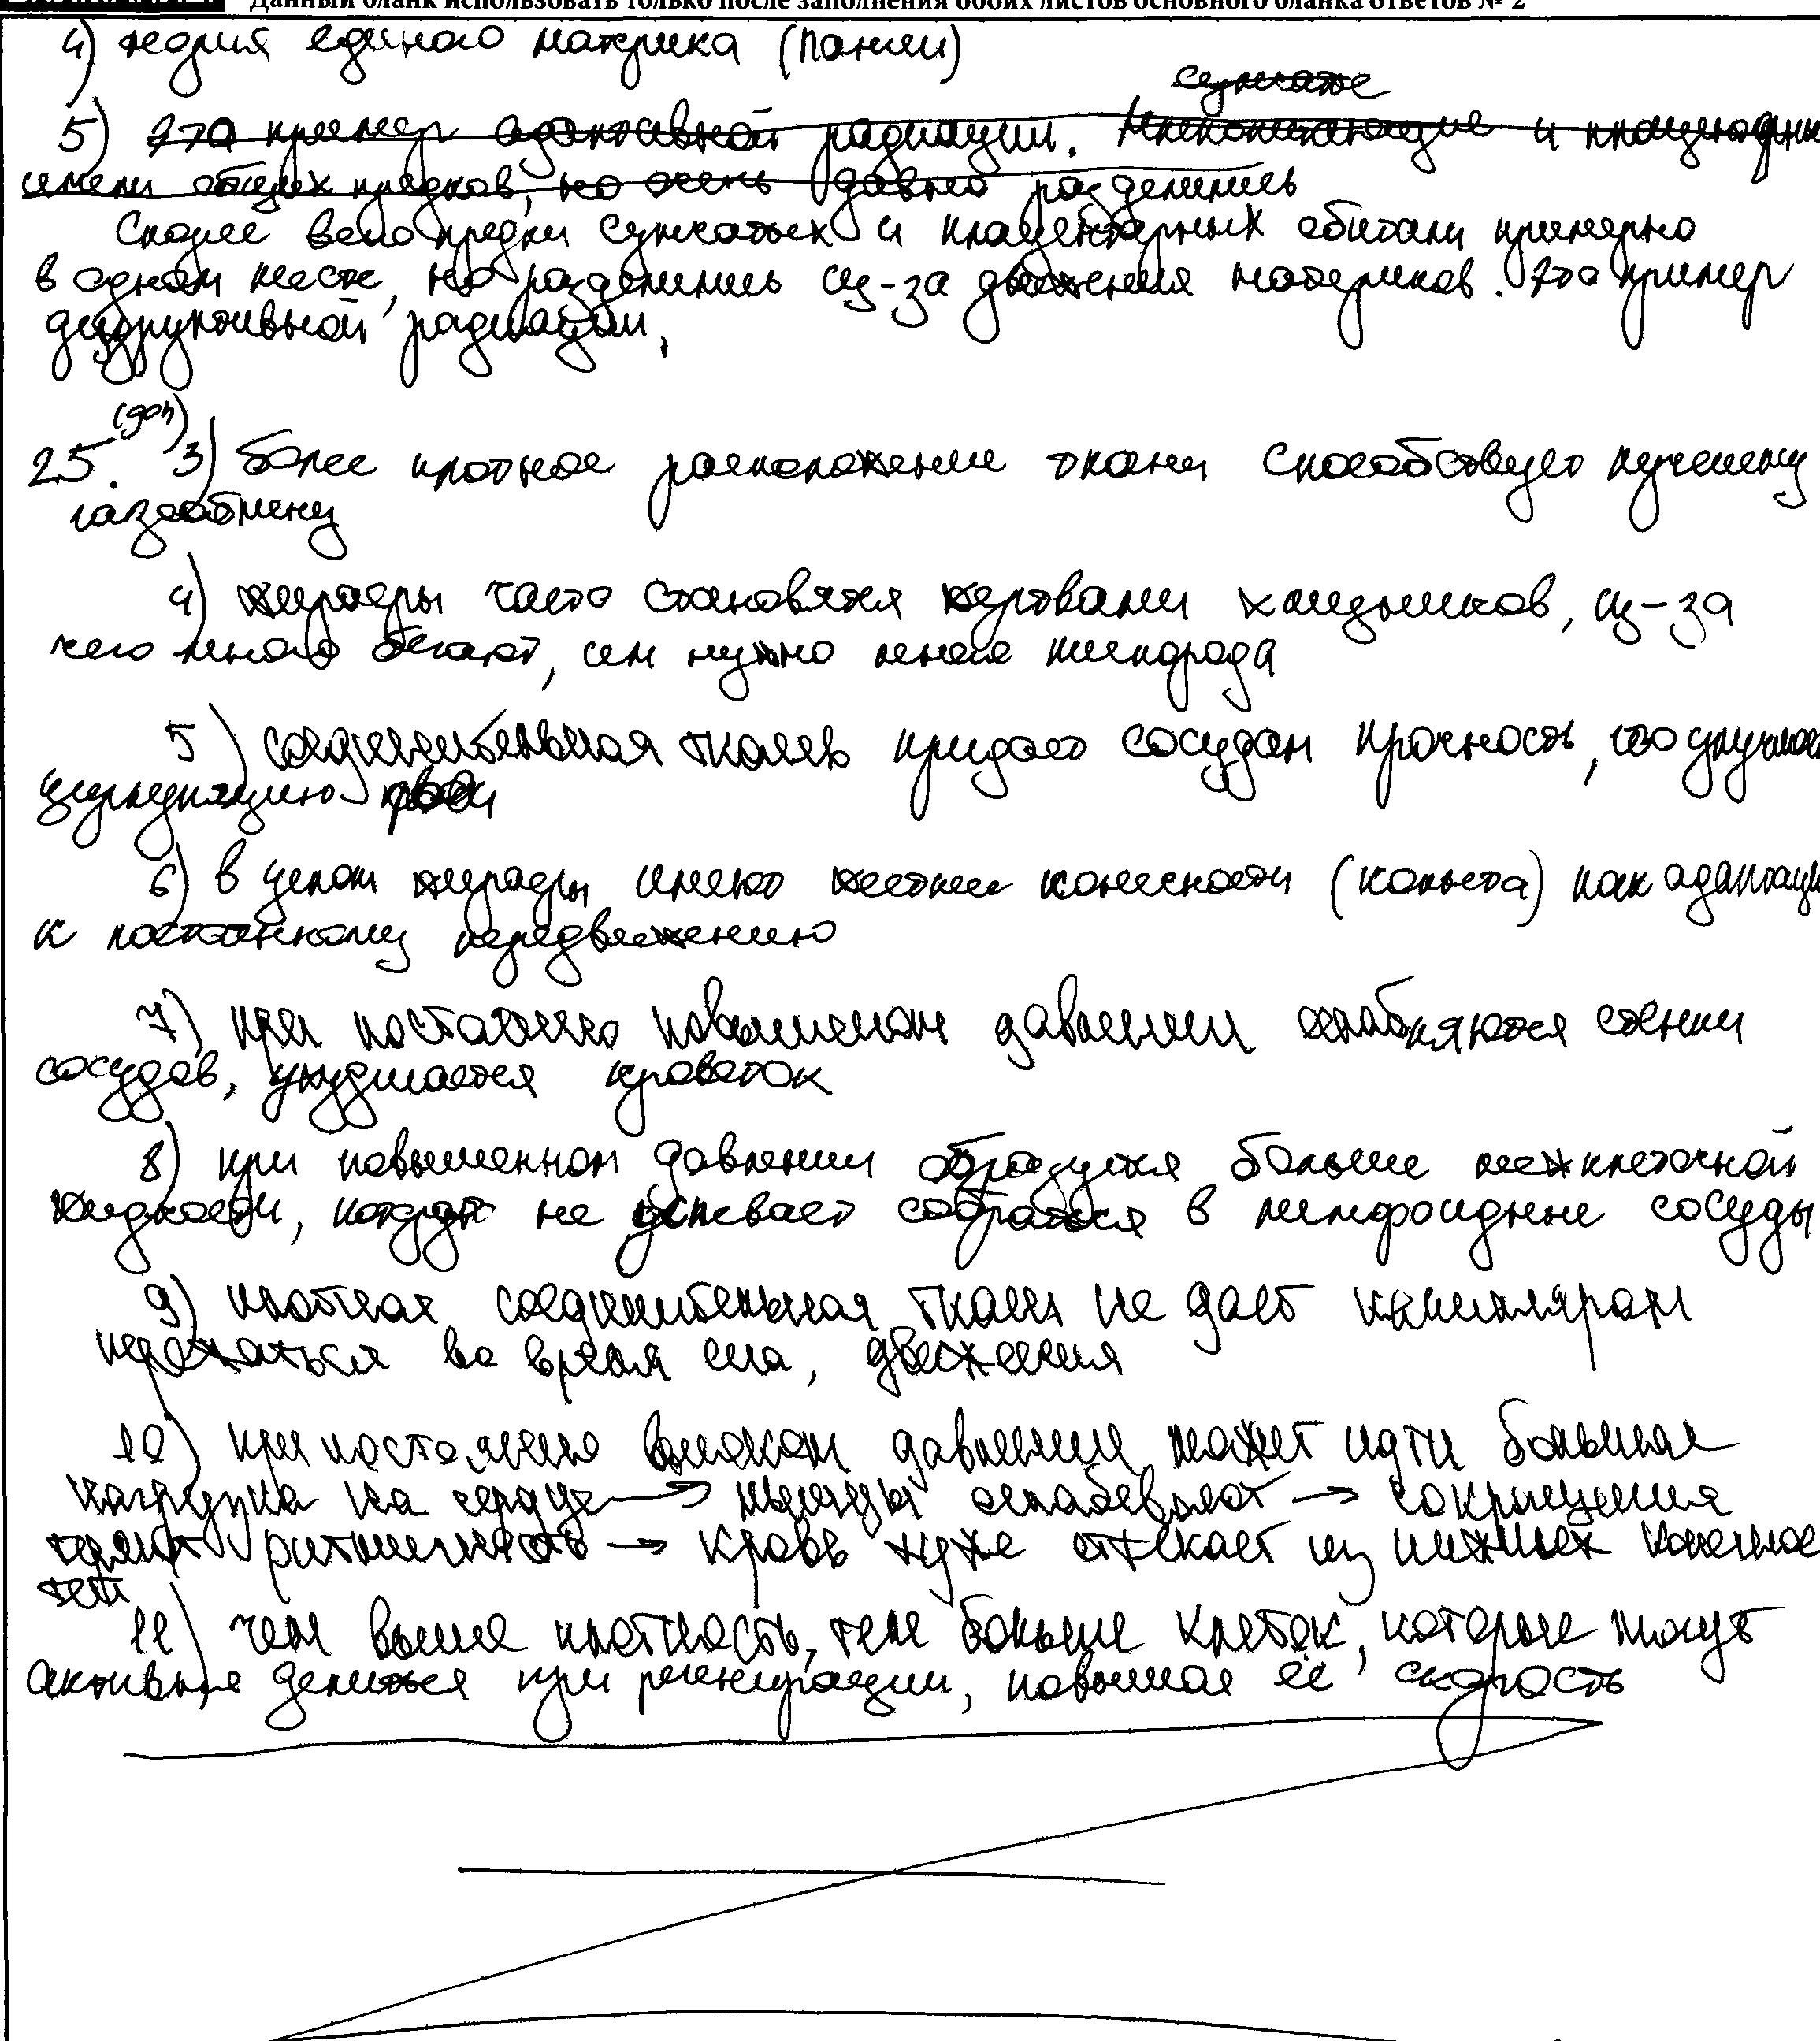 Данный бланк использовать только после заполнения обоих листов основного бланка ответов № 2
4) теория единого материка (Пангеи)
сумчатые
5) Это пример адаптивной радиации. Млекопитающие и плацентарные
имели общих предков, но очень давно разделились
Скорее всего предки сумчатых и плацентарных обитали примерно
в одном месте, но разделились из-за движения материков. Это пример
дизруптивной радиации.
(доп)
25. 3) более плотное расположение ткани способствует лучшему
газообмену
4) жирафы часто становятся жертвами хищников, из-за
чего много бегают, им нужно много кислорода
5) соединительная ткань придает сосудам прочность, что улучшает
циркуляцию крови
6) в целом жирафы имеют жесткие конечности (копыта) как адаптация
к постоянному передвижению
7) при постоянно повышенном давлении ослабляются стенки
сосудов, ухудшается кровоток
8) при повышенном давлении образуется больше межклеточной
жидкости, которая не успевает собраться в лимфоидные сосуды
9) плотная соединительная ткань не дает капиллярам
пережаться во время сна, движения
10) при постоянно высоком давлении может идти большая
нагрузка на сердце → мышцы ослабевают → сокращения
теряют ритмичность → кровь хуже оттекает из нижних конечнос
тей
11) чем выше плотность, тем больше клеток, которые могут
активнее делиться при регенерации, повышая её скорость